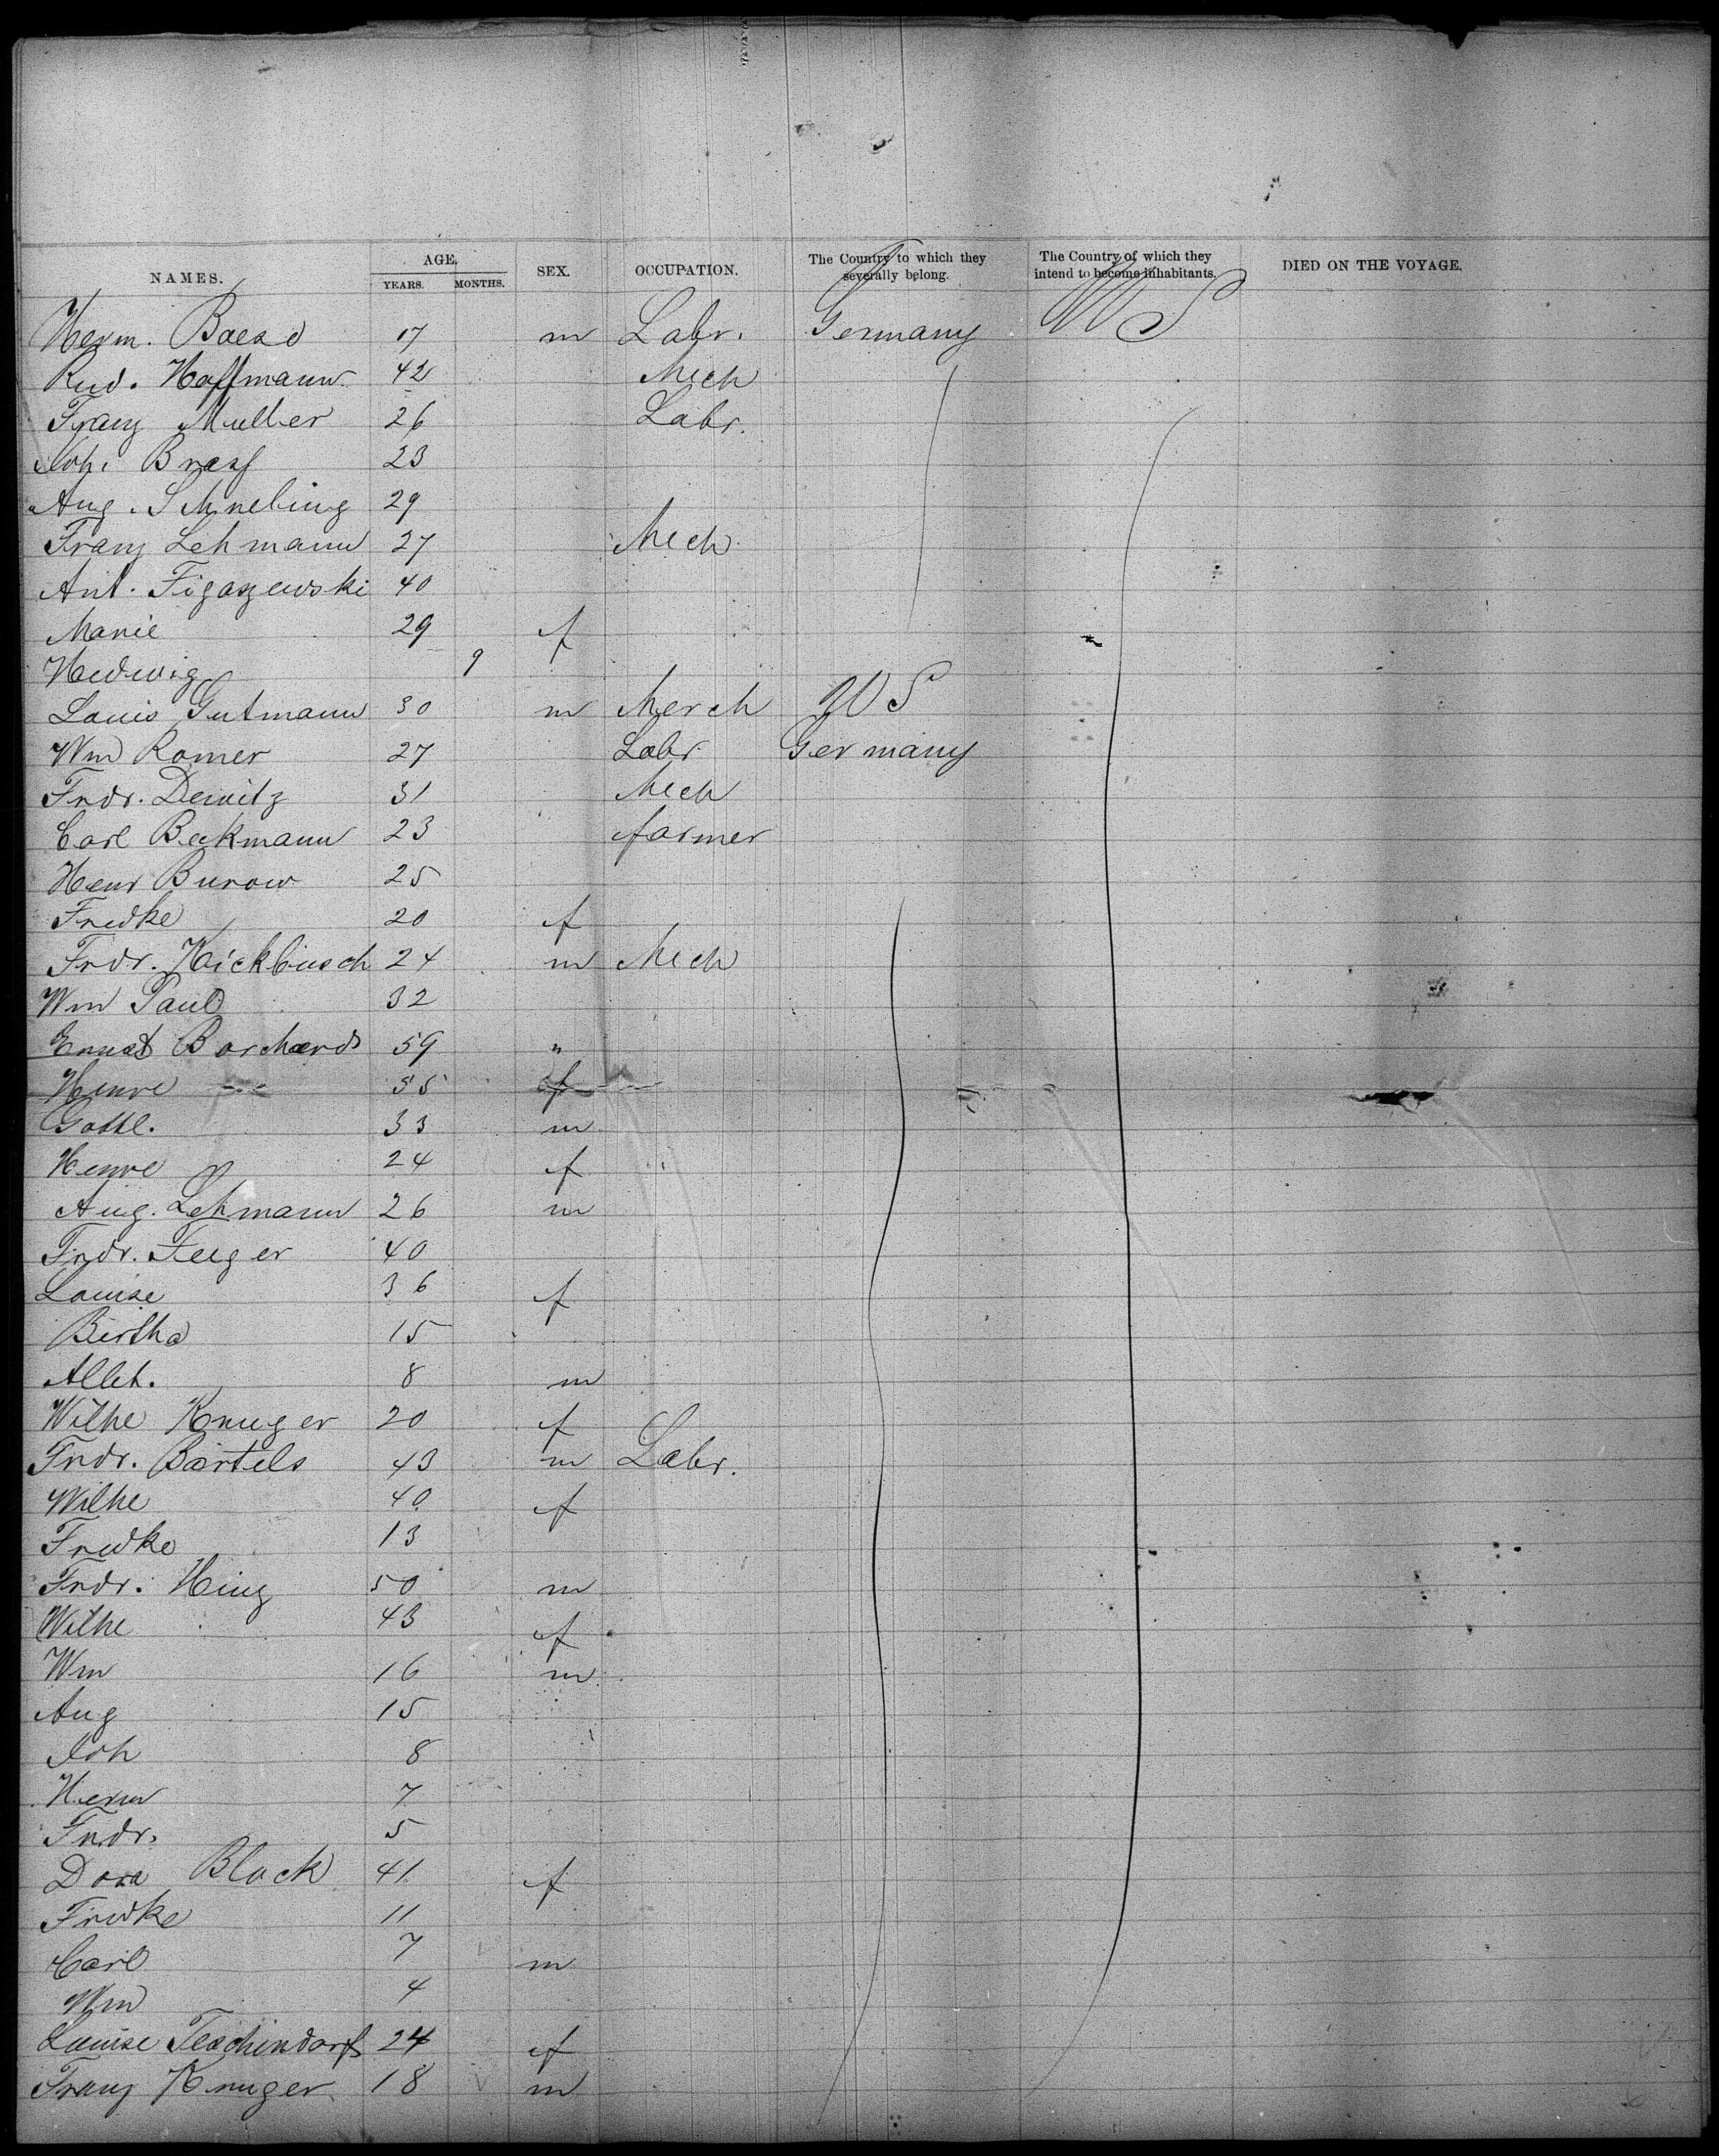 NAMES. AGE, SEX. OCCUPATION. The Country to which they severally belong. The Country of which they intend to become inhabitants. DIED ON THE VOYAGE.
YEARS. MONTHS.
Herm. Baese 17 m Labr. Germany US
Rud. Hoffmann 42 Mech
Franz Muller 26 Labr.
Joh. 23
Aug. Schnebing 29
Franz Lehmann 27 Mech
Ant. Figaszewski 40
Marie 29 f
Hedwig 9
Louis Gutmann 30 m Merch US
Wm Romer 27 Labr Germany
Frdr. Dewitz 31 Mech
Carl Beckmann 23 farmer
Henr Burow 25
Fredke 20 f
Frdr. Kickbusch 24 m Mech
Wm Paul 32
Ernst Borchard 59 "
Henre 55 f
Gottl. 33 m
Henre 24 f
Aug. Lehmann 26 m
Frdr. 40
Louise 36 f
Bertha 15
Albt. 8 m
Wilhe Kruger 20 f
Frdr. Bartels 43 m Labr.
Wilhe 40 f
Fredke 13
Frdr. Hinz 50 m
Wilhe 43 f
Wm 16 m
Aug 15
Joh 8
Herm 7
Frdr. 5
Dora Block 41 f
Fredke 11
Carl 7 m
Wm 4
Louise Teschendorf 24 f
Franz Kruger 18 m